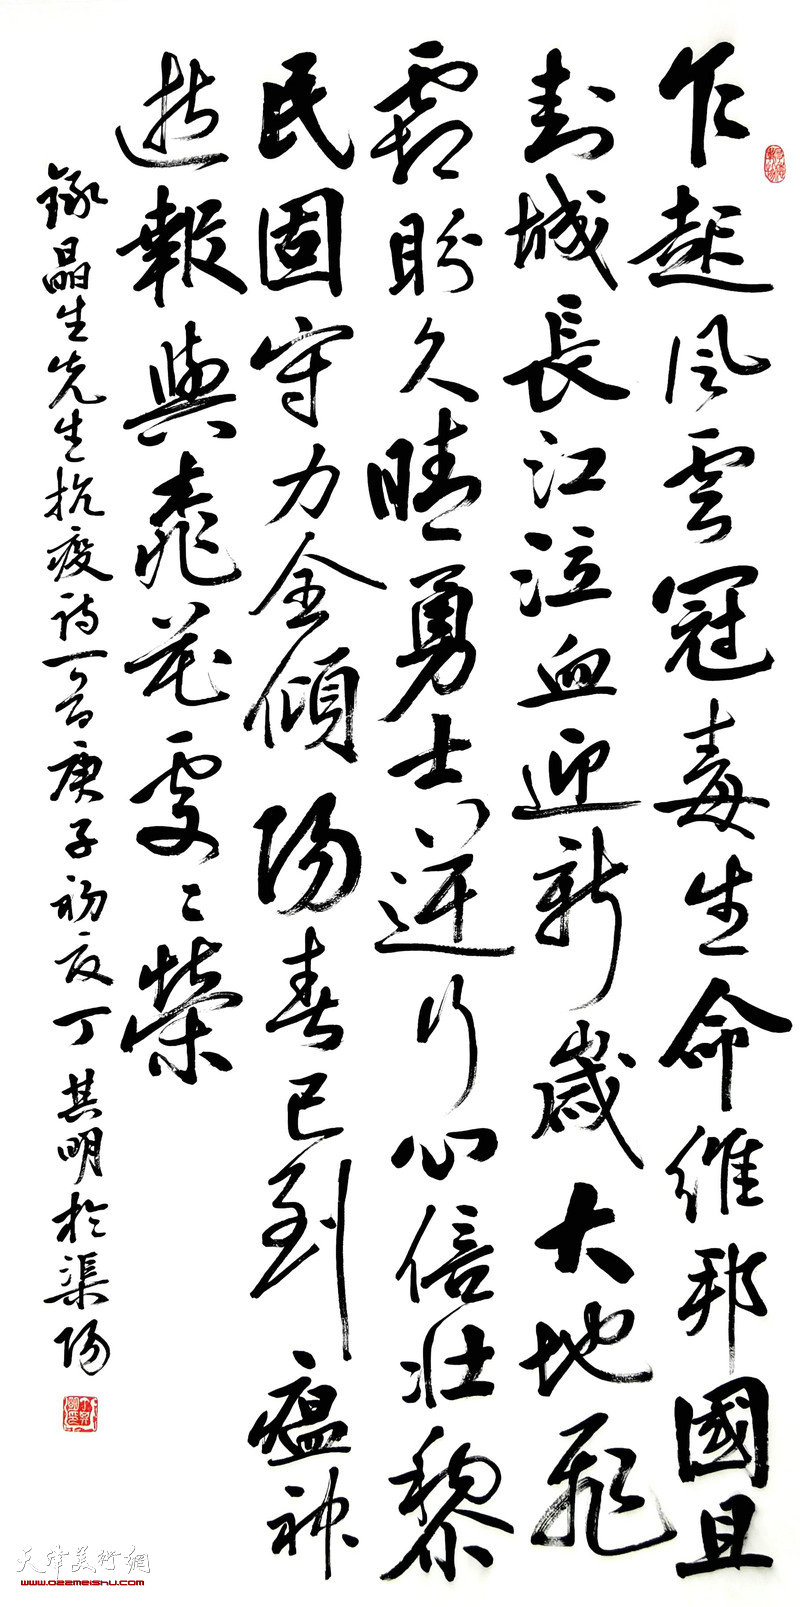 乍起风雲冠毒生命維邦國且
封城長江泣血迎新歲大地飛
霜盼久晴勇士逆行心倍壯黎
民固守力全傾陽春已到瘟神
逝報與桃花處〻榮
錄晶生先生抗疫诗一首庚子初夏丁其明於渠陽
天津美術網
www.022meishu.com